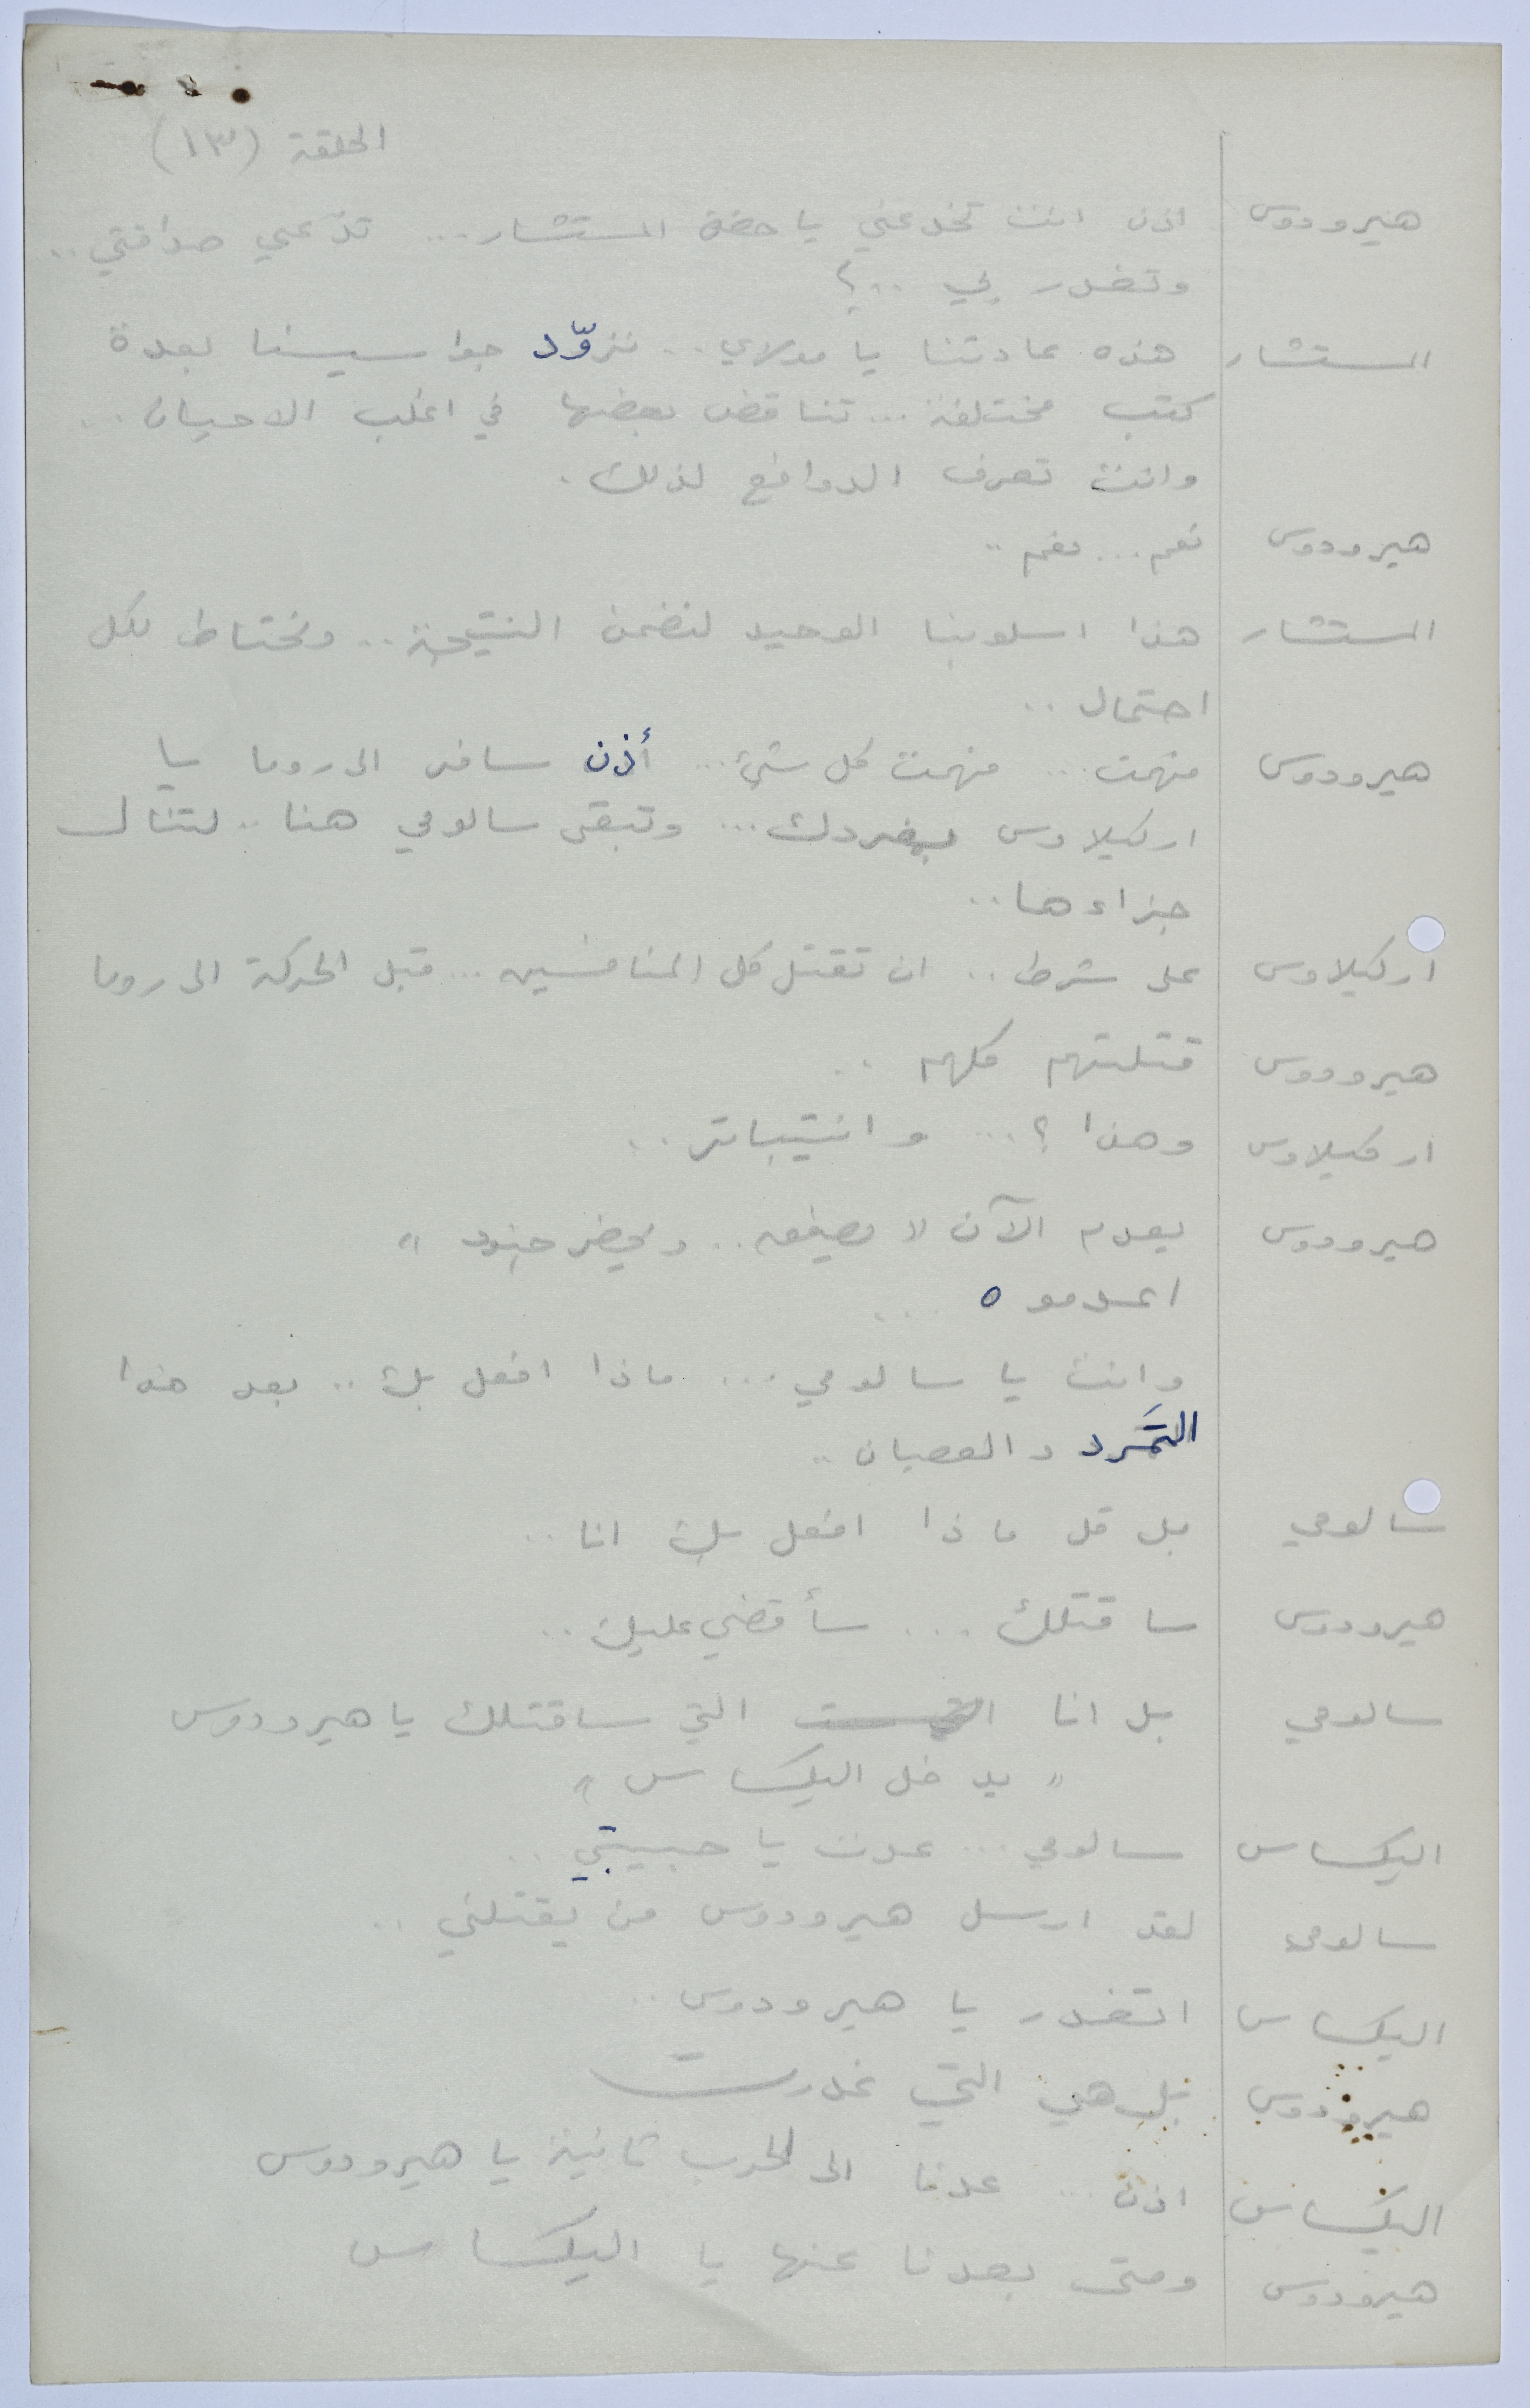 الحلقة (١٣)
هيرودوس اذن انت تخدعني يا حضرة المستشار... تدّعي صداقتي..
وتغدر بي ..؟
المستشار هذه عادتنا يا مولاي.. نزوّد جواسيسنا بعدة
كتب مختلفة... تناقض بعضها في اغلب الاحيان..
وانت تعرف الدوافع لذلك.
هيرودوس نعم... نعم..
المستشار هذا اسلوبنا الوحيد لنضمن النتيجة.. ونحتاط لكل
احتمال..
هيرودوس فهمت... فهمت كل شيء... أذن سافر الى روما يا
اركيلاوس بمفردك... وتبقى سالومي هنا.. لتنال
جزاءها..
اركيلاوس على شرط.. ان تقتل كل المنافسين... قبل الحركة الى روما
هيرودوس قتلتهم كلهم ..
اركيلاوس وهذا ؟... وانتيباتر..
هيرودوس يعدم الآن " يصفعه.. ويحضر جنود "
اعدموه ...
وانت يا سالومي... ماذا افعل بك.. بعد هذا
التمَرد والعصيان..
سالومي بل قل ماذا افعل بك انا..
هيرودوس ساقتلك... سأقضي عليك..
سالومي بل انا التي ساقتلك يا هيرودوس
" يدخل اليكساس "
اليكساس سالومي... عدت يا حبيبتي..
سالومي لقد ارسل هيرودوس من يقتلني..
اليكساس اتغدر يا هيرودوس..
هيرودوس بل هي التي غدرت
اليكساس اذن... عدنا الى الحرب ثانية يا هيرودوس
هيرودوس ومتى بعدنا عنها يا اليكساس